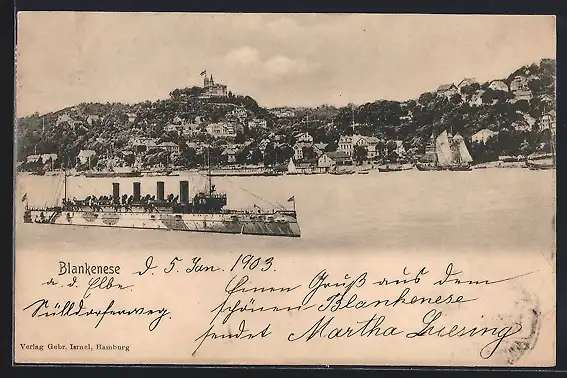 Blankenese d. 5. Jan. 1903.
a. d. Elbe.
Sülldorferweg.
Einen Gruß aus dem
schönen Blankenese
sendet Martha Luesing
Verlag Gebr. Israel, Hamburg